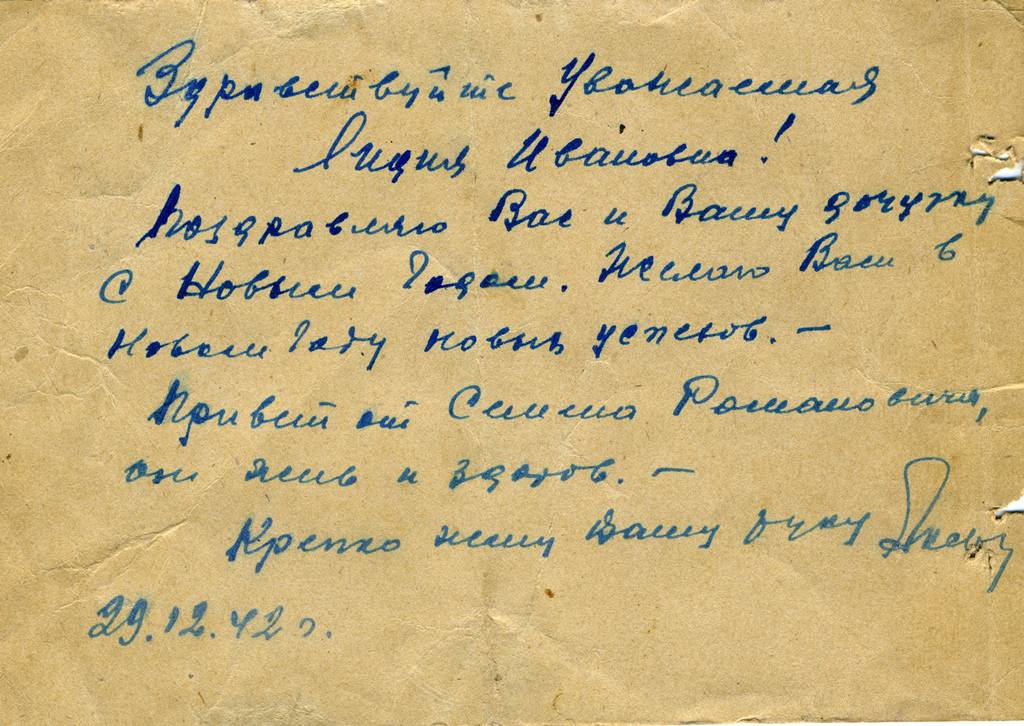 Здравствуйте Уважаемая
Лидия Ивановна!
Поздравляю Вас и Вашу дочурку
с Новым Годом. Желаю Вам в
Новом Году новых успехов. —
Привет от Семена Романовича,
он жив и здоров. —
Крепко жму Вашу руку
29.12.42 г.